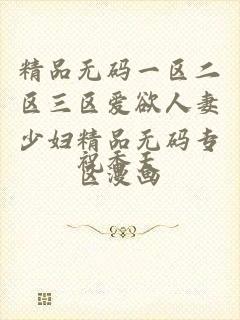 精品无码一区二
区三区爱欲人妻
少妇精品无码专
区漫画
祝香天